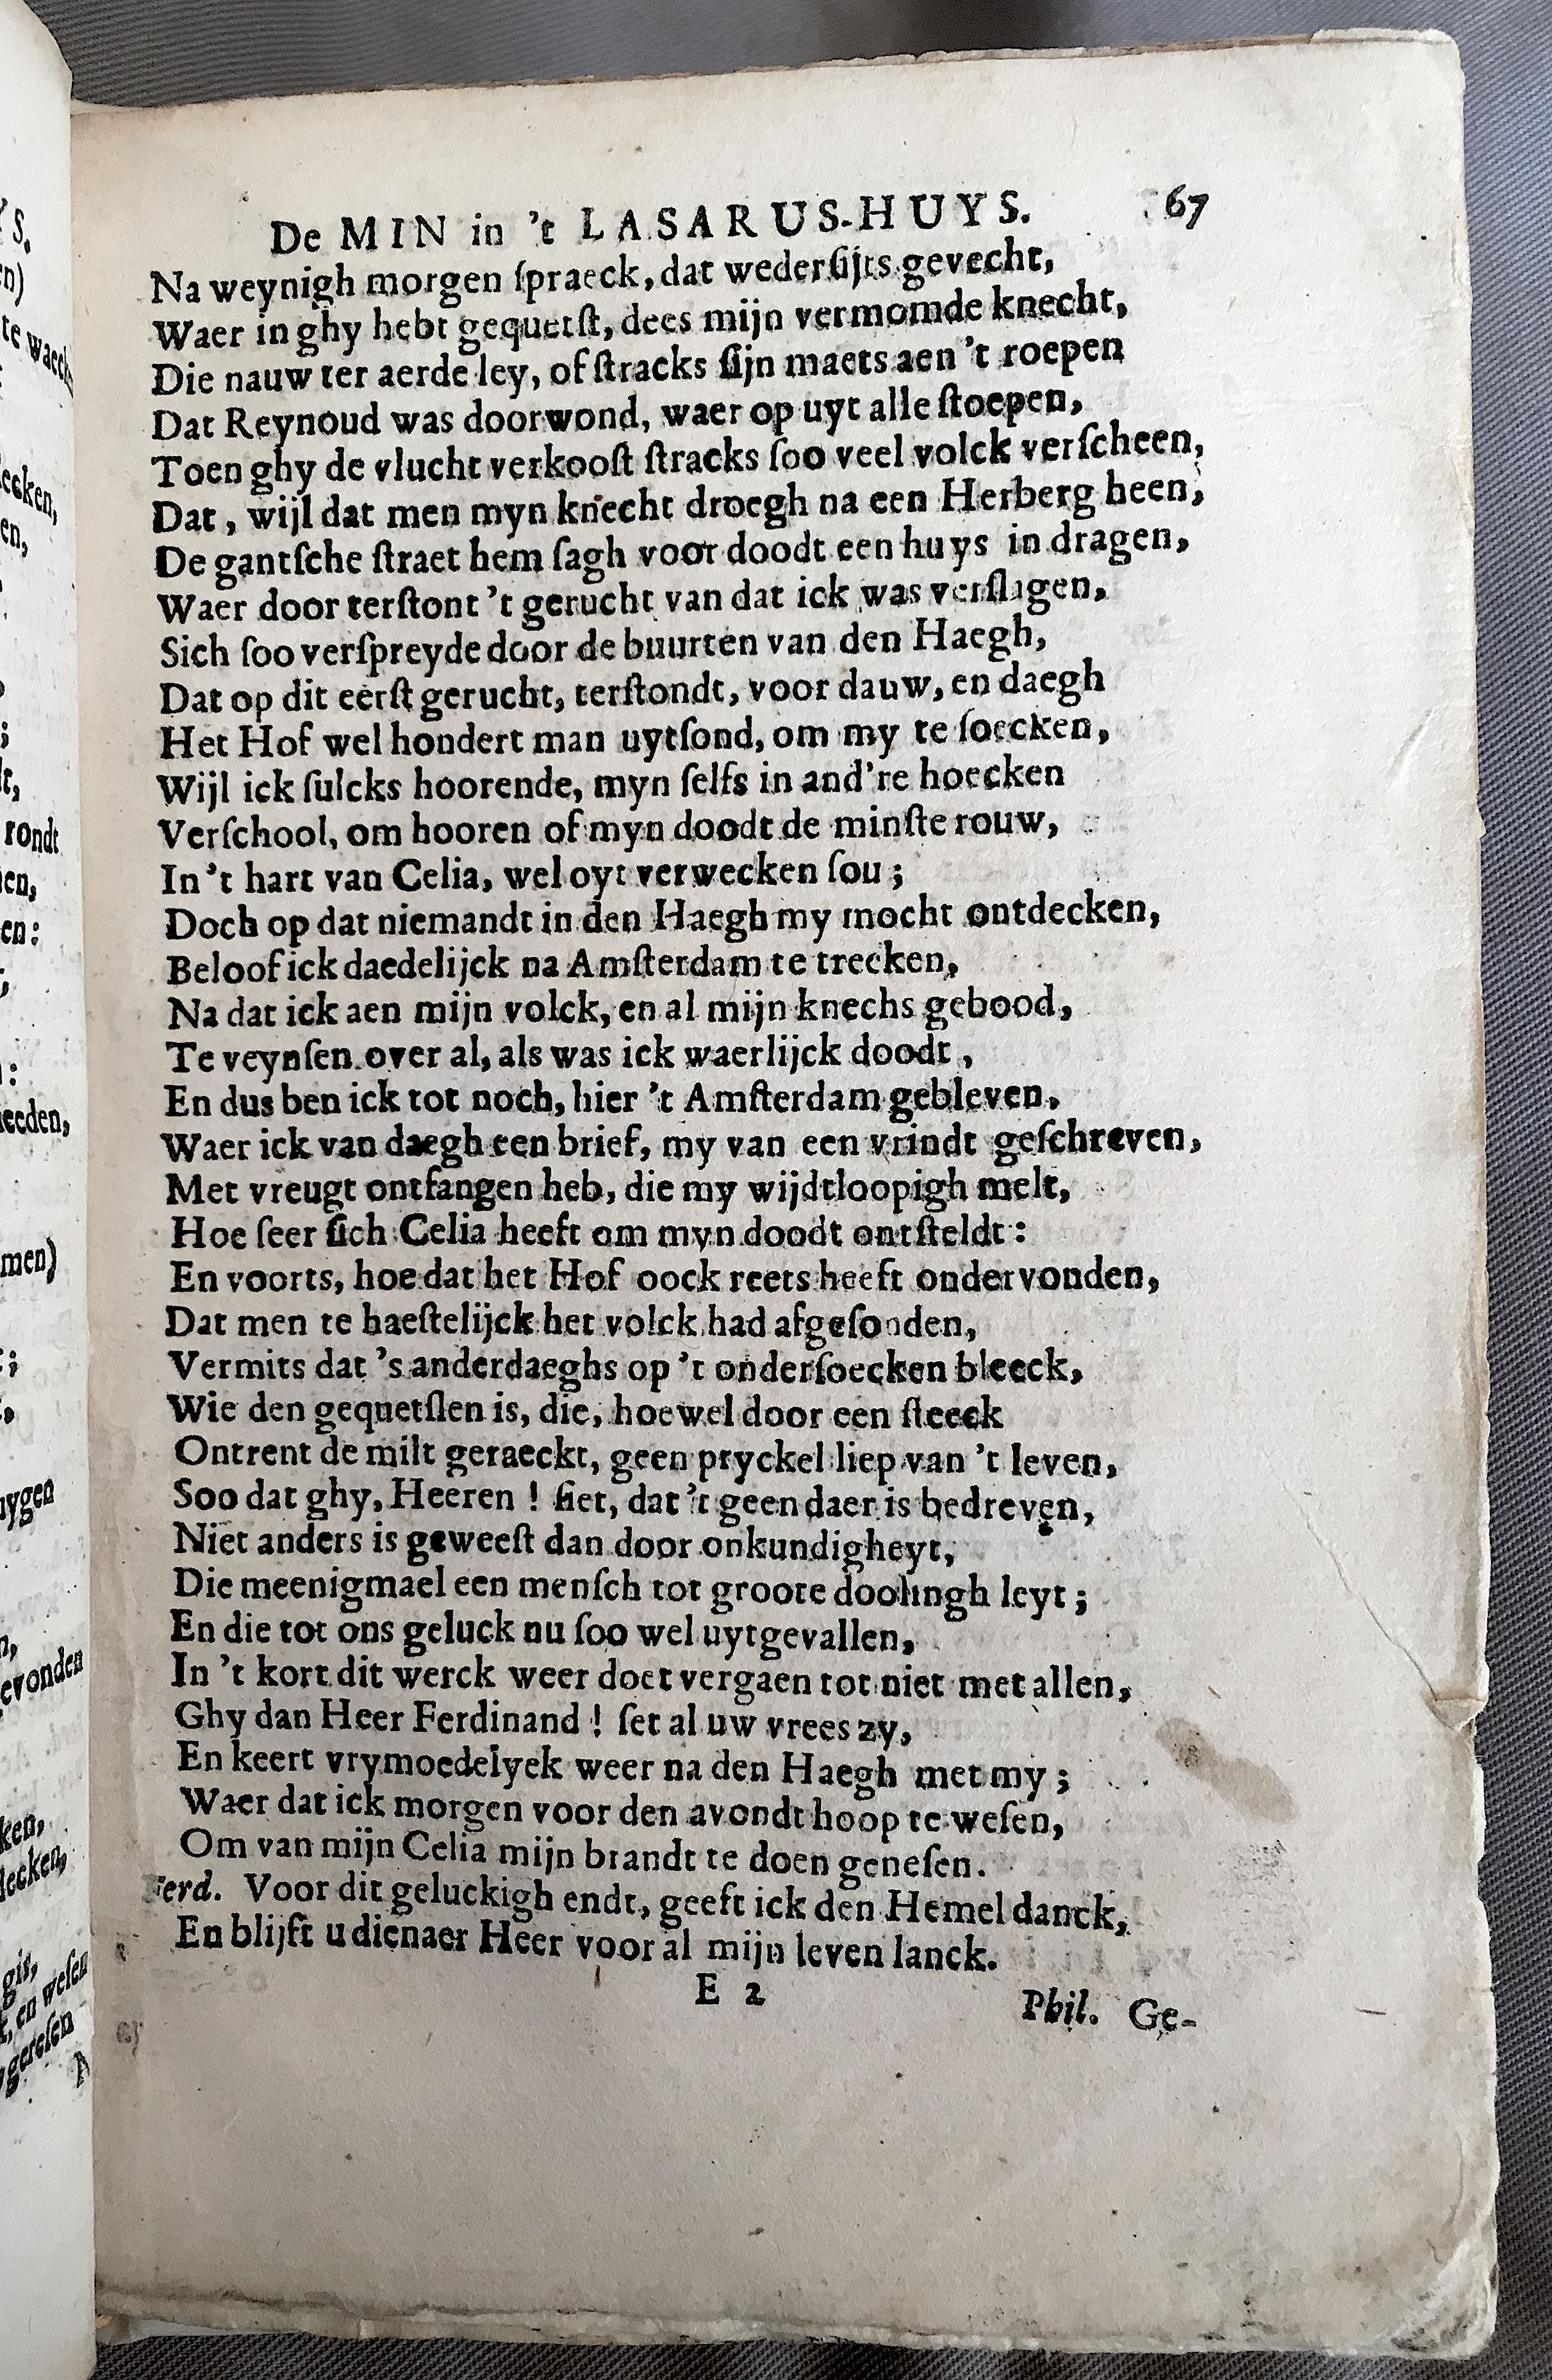 De MIN in 't LASARUS-HUYS. 67
Na weynigh morgen ſpraeck, dat wederſijts gevecht,
Waer in ghy hebt gequetſt, dees mijn vermomde knecht,
Die nauw ter aerde ley, of ſtracks ſijn maets aen 't roepen
Dat Reynoud was doorwond, waer op uyt alle ſtoepen,
Toen ghy de vlucht verkooſt ſtracks ſoo veel volck verſcheen,
Dat, wijl dat men myn knecht droegh na een Herberg heen,
De gantſche ſtraet hem ſagh voor doodt een huys in dragen,
Waer door terſtont 't gerucht van dat ick was verſlagen,
Sich ſoo verſpreyde door de buurten van den Haegh,
Dat op dit eerſt gerucht, terſtondt, voor dauw, en daegh
Het Hof wel hondert man uytſond, om my te ſoecken,
Wijl ick ſulcks hoorende, myn ſelfs in and're hoecken
Verſchool, om hooren of myn doodt de minſte rouw,
In 't hart van Celia, wel oyt verwecken ſou;
Doch op dat niemandt in den Haegh my mocht ontdecken,
Beloof ick daedelijck na Amſterdam te trecken,
Na dat ick aen mijn volck, en al mijn knechs gebood,
Te veynſen over al, als was ick waerlijck doodt,
En dus ben ick tot noch, hier 't Amſterdam gebleven,
Waer ick van daegh een brief, my van een vrindt geſchreven,
Met vreugt ontfangen heb, die my wijdtloopigh melt,
Hoe ſeer ſich Celia heeft om myn doodt ontſteldt:
En voorts, hoe dat het Hof oock reets heeft ondervonden,
Dat men te haeſtelijck het volck had afgeſonden,
Vermits dat 's anderdaeghs op 't onderſoecken bleeck,
Wie den gequetſten is, die, hoewel door een ſteeck
Ontrent de milt geraeckt, geen pryckel liep van 't leven,
Soo dat ghy, Heeren! ſiet, dat 't geen daer is bedreven,
Niet anders is geweeſt dan door onkundigheyt,
Die meenigmael een menſch tot groote doolingh leyt;
En die tot ons geluck nu ſoo wel uytgevallen,
In 't kort dit werck weer doet vergaen tot niet met allen,
Ghy dan Heer Ferdinand! ſet al uw vrees zy,
En keert vrymoedelyek weer na den Haegh met my;
Waer dat ick morgen voor den avondt hoop te weſen,
Om van mijn Celia mijn brandt te doen geneſen.
Ferd. Voor dit geluckigh endt, geeft ick den Hemel danck,
En blijft u dienaer Heer voor al mijn leven lanck.
E 2 Phil. Ge-